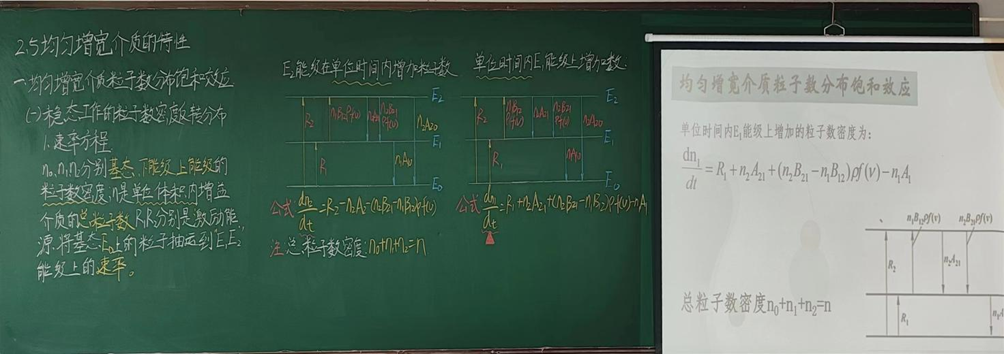 2.5均匀增宽介质的特性
一.均匀增宽介质粒子数分布饱和效应
(一)稳态工作的粒子数密度反转分布
1.速率方程
n₀,n₁,n₂分别基态、下能级上能级的
粒子数密度,n是单位体积内增益
介质的总粒子数R₁R₂分别是激励能
源,将基态E₀上的粒子抽运到E₁,E₂
能级上的速率。
E₂能级在单位时间内增加粒子数
E₂
R₂
R₁
E₁
E₀
公式 dn₂/dt=R₂-n₂A₂-(n₂B₂₁-n₁B₁₂)ρf(ν)
注:总粒子数密度:n₀+n₁+n₂=n
单位时间内E₁能级上增加数
E₂
R₂
n₂A₂₁
R₁
E₁
E₀
公式 dn₁/dt=R₁+n₂A₂₁+(n₂B₂₁-n₁B₁₂)ρf(ν)-n₁A₁
均匀增宽介质粒子数分布饱和效应
单位时间内E₁能级上增加的粒子数密度为:
dn₁/dt = R₁ + n₂A₂₁ + (n₂B₂₁ - n₁B₁₂)ρf(ν) - n₁A₁
n₁B₁₂ρf(ν) n₂B₂₁ρf(ν)
R₂ n₂A₂₁
R₁ n₁A
总粒子数密度n₀+n₁+n₂=n